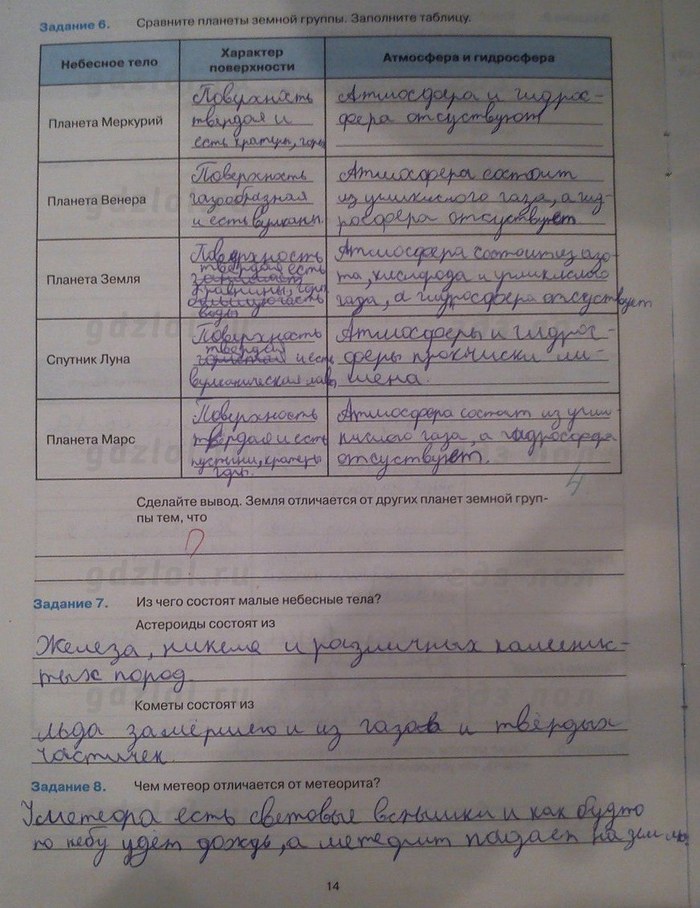 Задание 6. Сравните планеты земной группы. Заполните таблицу.
Небесное тело
Характер
поверхности
Атмосфера и гидросфера
Планета Меркурий
Поверхность
твердая и
есть кратеры, горы
Атмосфера и гидрос-
фера отсуствуют
Планета Венера
Поверхность
газообразная
и есть вулканы
Атмосфера состоит
из углекислого газа, а гид-
росфера отсуствует
Планета Земля
Поверхность
твердая есть
равнины, горы
большую часть
воды
Атмосфера состоит из азо-
та, кислорода и углекислого
газа, а гидросфера отсуствует
Спутник Луна
Поверхность
твердая
и есть
вулканическая лава
Атмосферы и гидрос-
феры практиски ли-
шена.
Планета Марс
Поверхность
твердая и есть
пустыни, кратеры
горы.
Атмосфера состоит из угле-
кислого газа, а гидросфера
отсуствует.
4
Сделайте вывод. Земля отличается от других планет земной груп-
пы тем, что
?
gdzlol.ru
Задание 7. Из чего состоят малые небесные тела?
Астероиды состоят из
Железа, никеля и различных каменис-
тых пород
Кометы состоят из
льда замёршего и из газов и твёрдых
частичек.
Задание 8. Чем метеор отличается от метеорита?
У метеора есть световые вспышки и как будто
по небу идёт дождь, а метеорит падает на землю
14